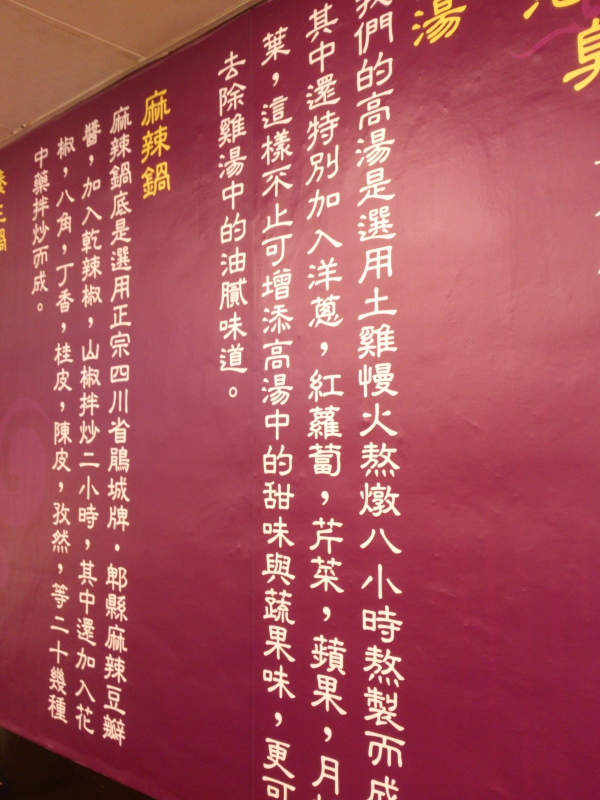 身
湯
我們的高湯是選用土雞慢火熬燉八小時熬製而成
其中還特別加入洋蔥，紅蘿蔔，芹菜，蘋果，月
葉，這樣不止可增添高湯中的甜味與蔬果味，更可
去除雞湯中的油膩味道。
麻辣鍋
麻辣鍋底是選用正宗四川省鵑城牌．郫縣麻辣豆瓣
醬，加入乾辣椒，山椒拌炒二小時，其中還加入花
椒，八角，丁香，桂皮，陳皮，孜然，等二十幾種
中藥拌炒而成。
養生鍋